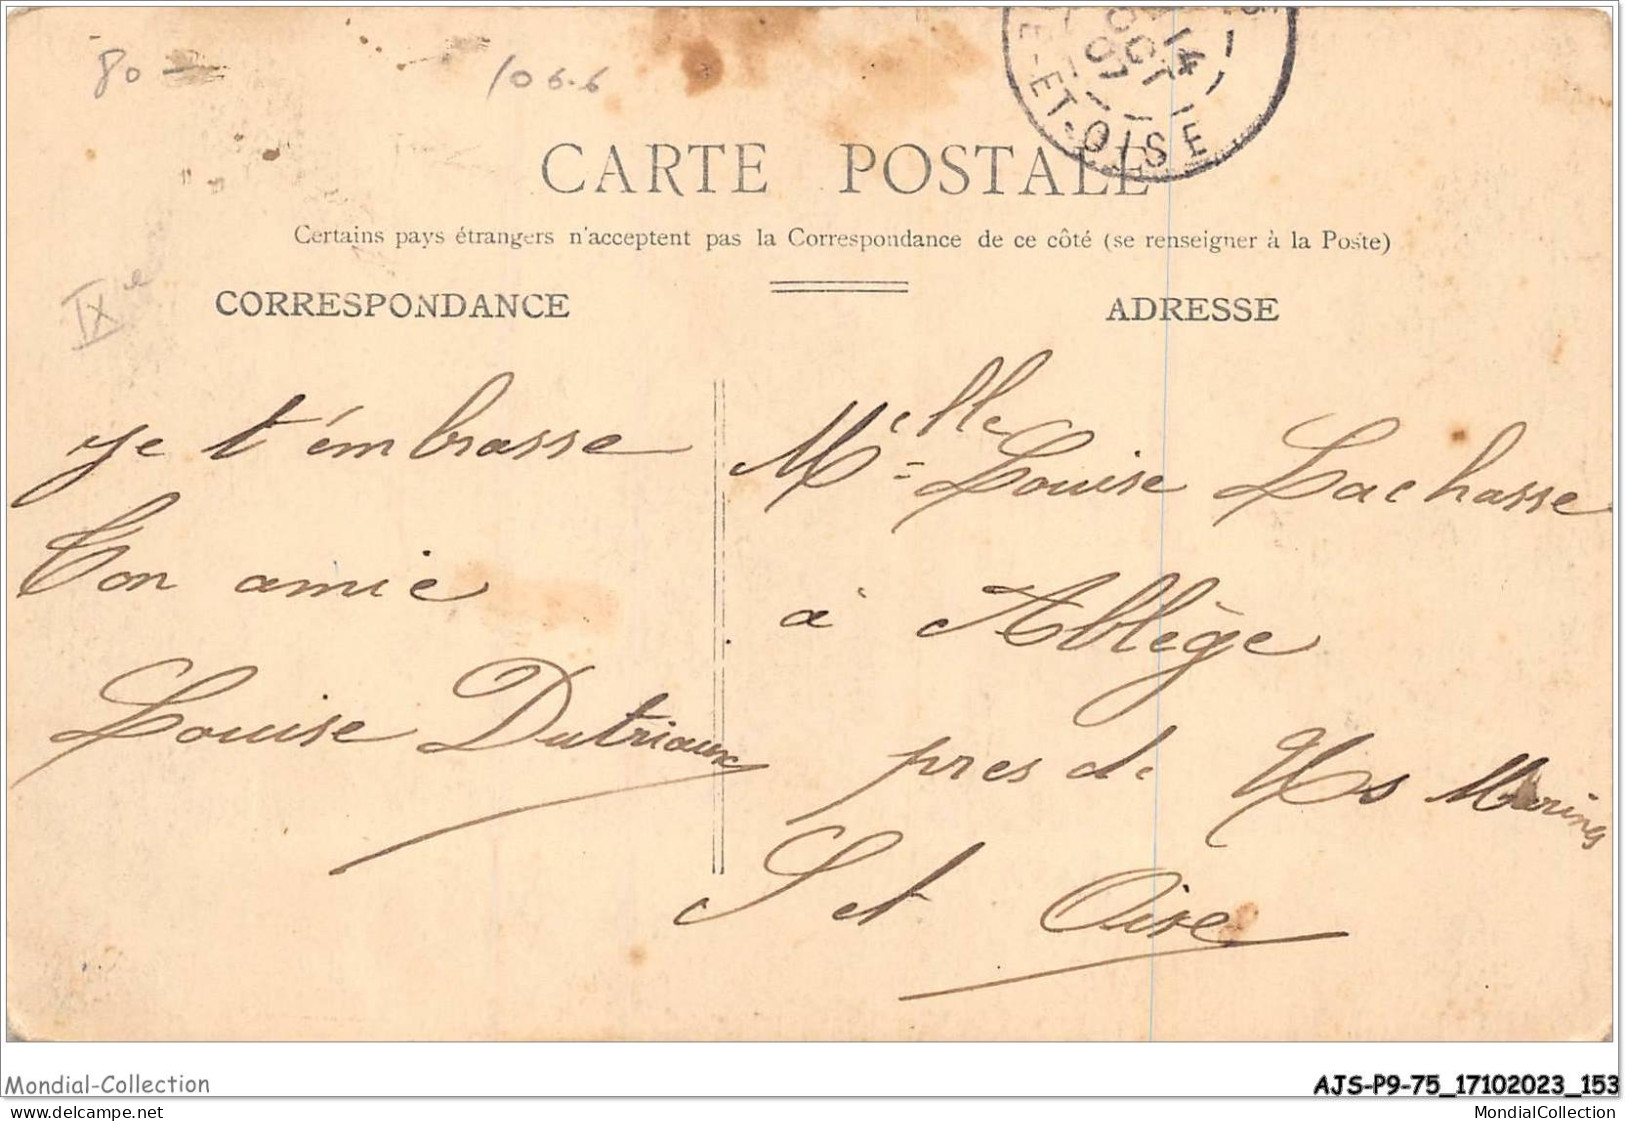 80
106.6
14
OCT
07
E-ET-OISE
CARTE POSTALE
Certains pays étrangers n'acceptent pas la Correspondance de ce côté (se renseigner à la Poste)
IXe
CORRESPONDANCE
ADRESSE
je t'émbrasse
Ton amie
Louise Dutriaux
Melle Louise Lachasse
à Ablège
pres de Us Marines
S et Oise
Mondial-Collection
AJS-P9-75_17102023_153
delcampe.net
MondialCollection